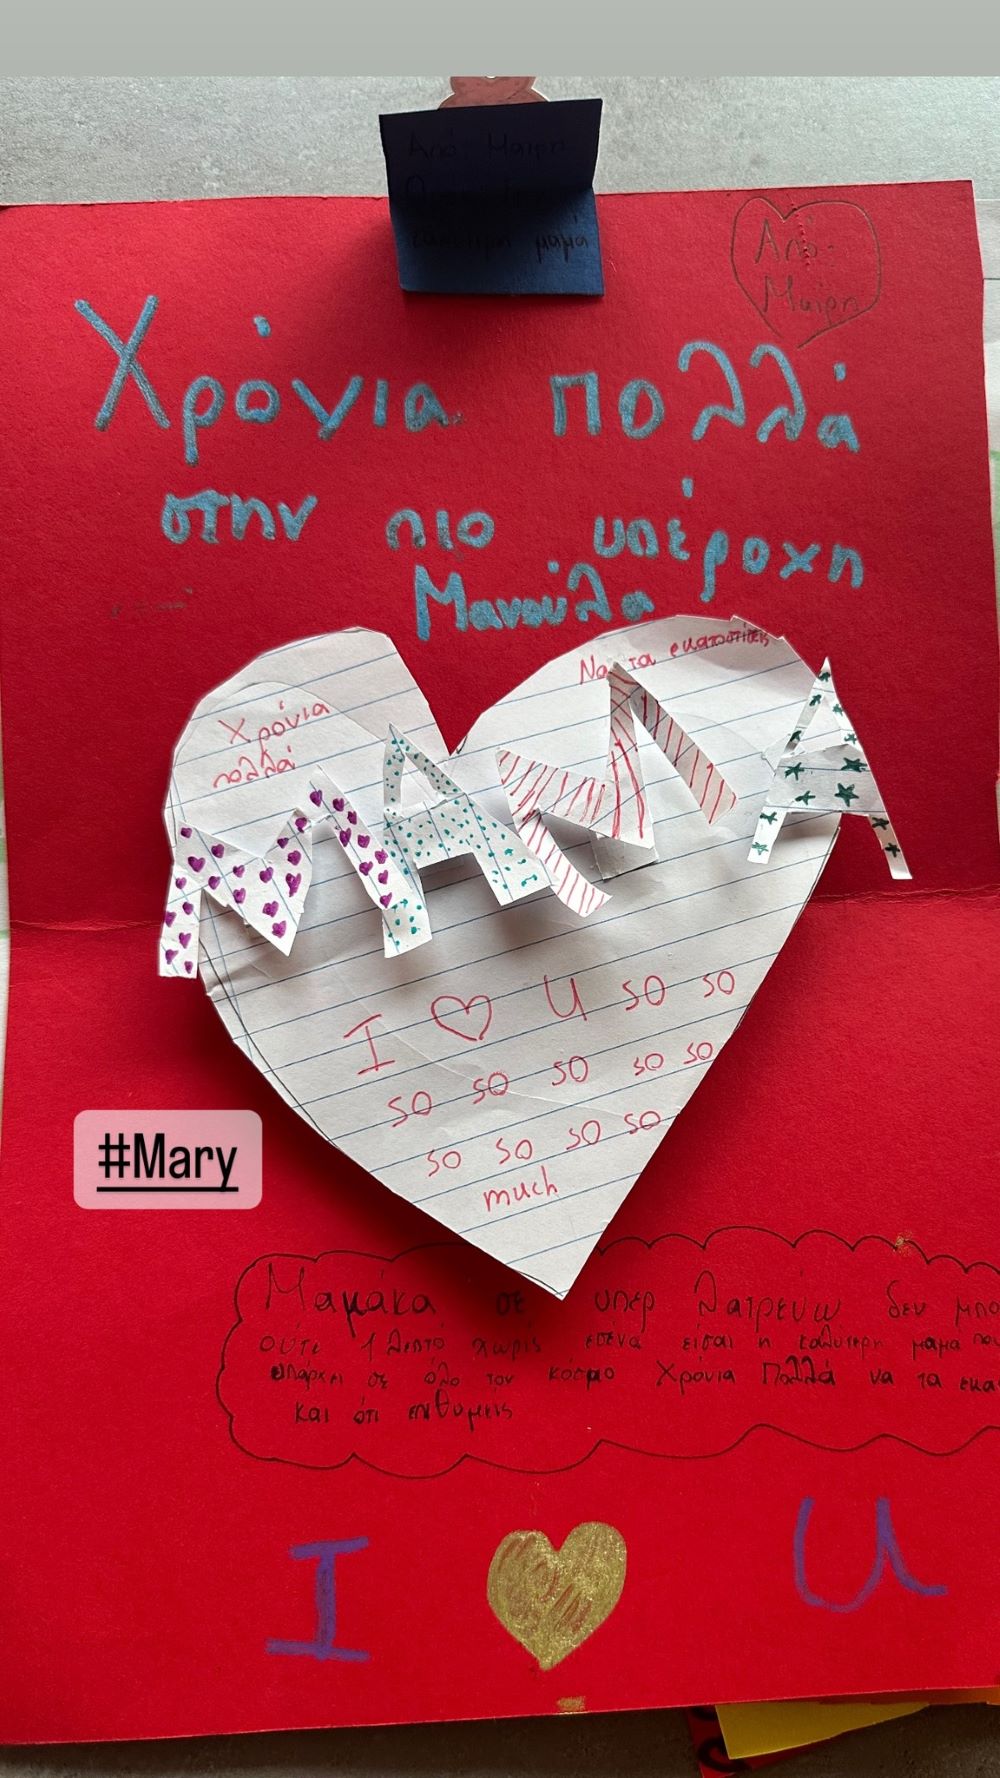 Από Μαίρη
μαμά
Από:
Μαίρη
Χρόνια πολλά
στην πιο υπέροχη
Μανούλα
Να τα εκατοστίσεις
Χρόνια
πολλά
ΜΑΜΑ
I ♡ U so so
so so so so so
so so so so
much
#Mary
Μαμάκα σε υπερ λατρεύω δεν μπο
ούτε 1 λεπτό χωρίς εσένα είσαι η καλύτερη μαμα που
υπάρχει σε όλο τον κόσμο Χρόνια Πολλά να τα εκα
και ότι επιθυμείς
I U